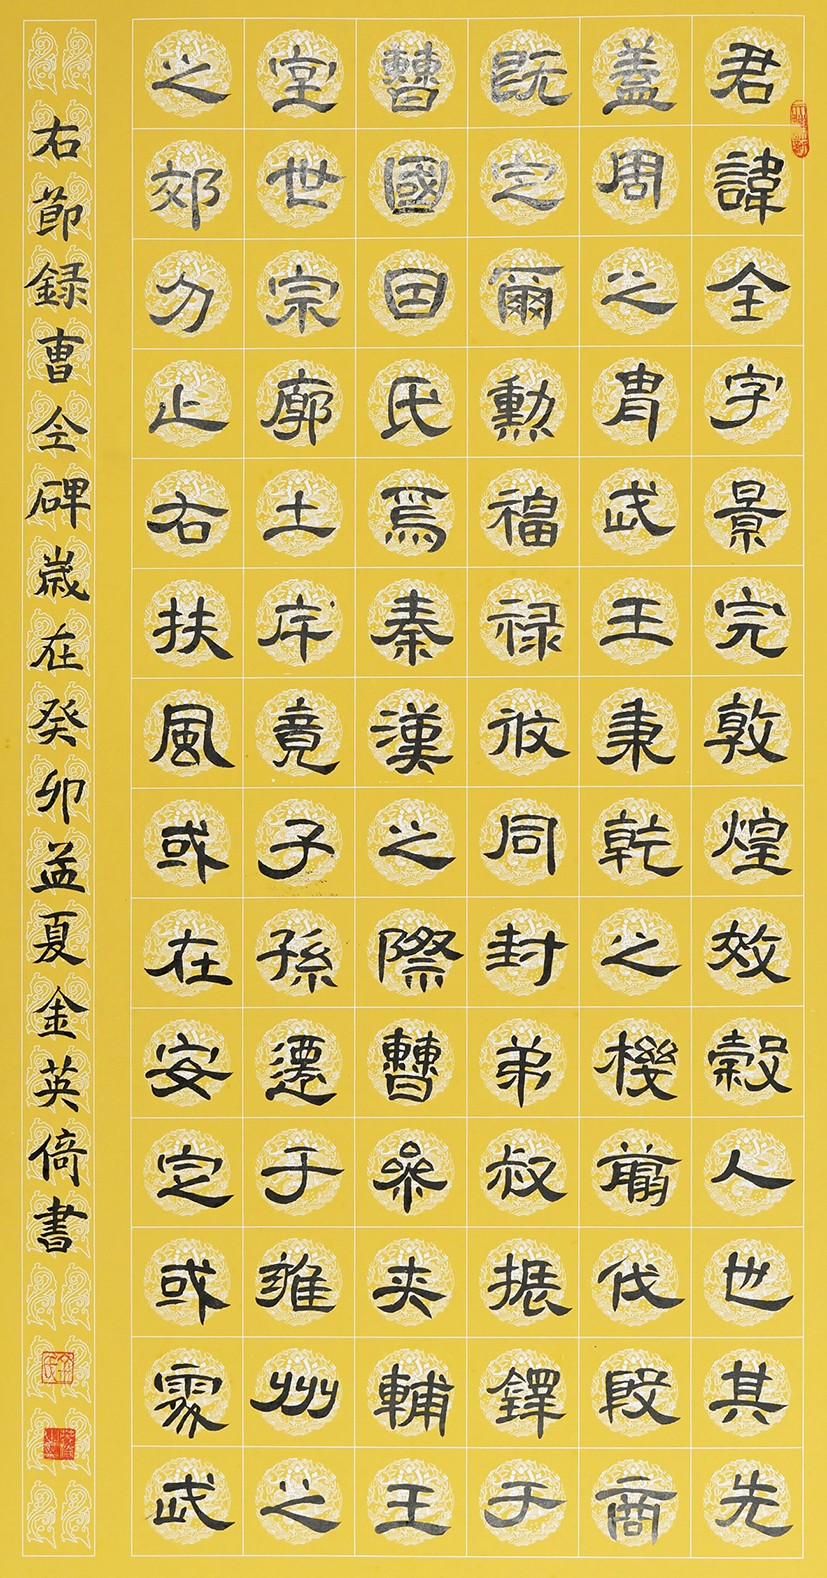 君諱全字景完敦煌效穀人也其先
蓋周之胄武王秉乾之機翦伐殷商
既定爾勳福禄攸同封弟叔振鐸于
曹國因氏焉秦漢之際曹參夾輔王
室世宗廓土斥竟子孫遷于雍州之
之郊分止右扶風或在安定或處武
右節録曹全碑歲在癸卯孟夏金英倚書